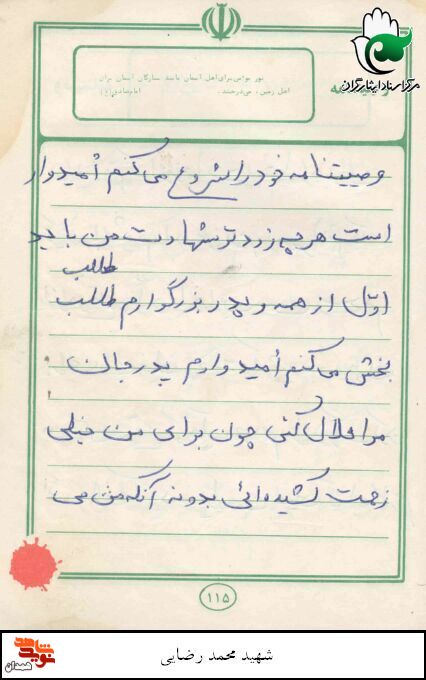 نور مؤمن برای اهل آسمان مانند ستارگان آسمان برای
اهل زمین، می‌درخشد. امام صادق(ع)
مرکز اسناد ایثارگران
وصیتنامه خود را شروع می کنم اُمیدوار
است هر چه زودتر شهادت من باید
طالب
اوّل از همه و پدر بزرگوارم طلب
بخش می کنم اُمیدوارم پدر جان
مرا حلال کنی چون برای من خیلی
زحمت کشیده ائی بدونه آنکه من می
۱۱۵
نوید شاهد
همدان
شهید محمد رضایی